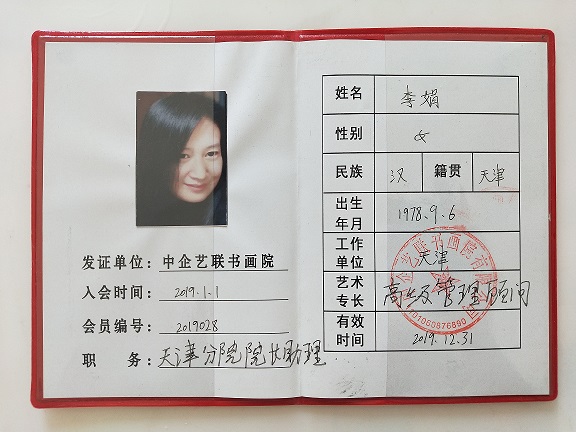 发证单位：中企艺联书画院
入会时间：2019.1.1
会员编号：2019028
职 务：天津分院院长助理
姓名 李娟
性别 女
民族 汉 籍贯 天津
出生年月 1978.9.6
工作单位 天津
艺术专长 高级管理顾问
有效时间 2019.12.31
企艺联书画院有限公司